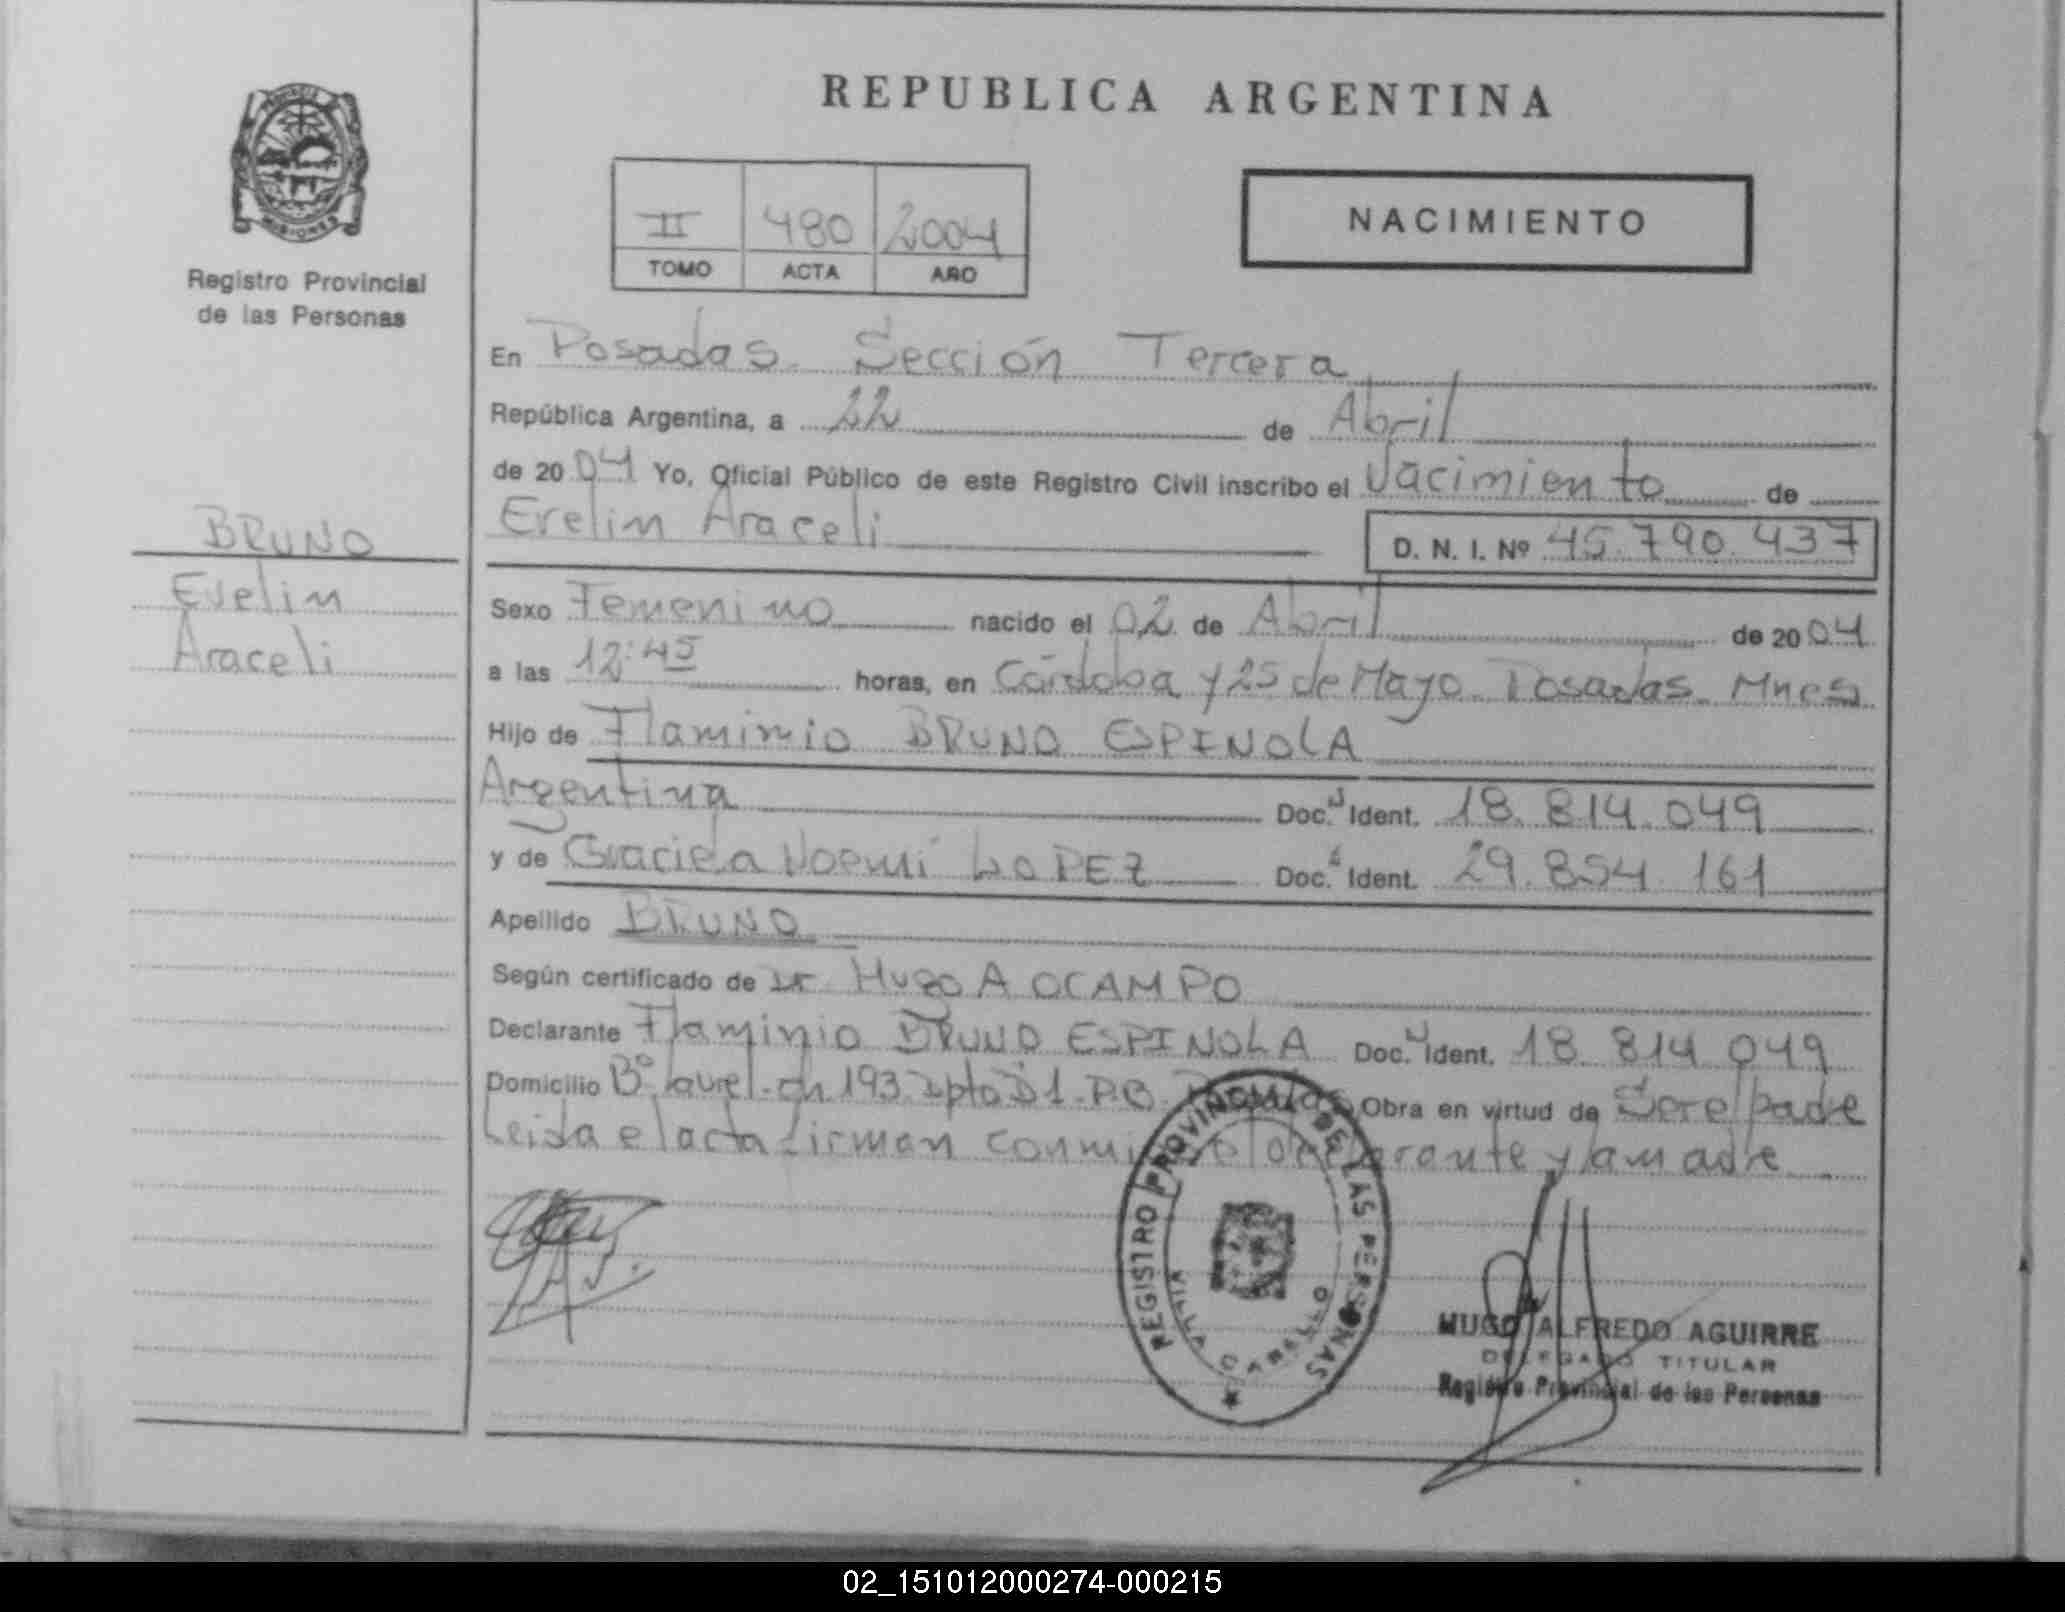 REPUBLICA ARGENTINA
PROVINCIA
MISIONES
Registro Provincial
de las Personas
II 480 2004
TOMO ACTA AÑO
NACIMIENTO
En Posadas. Sección Tercera
República Argentina, a 22 de Abril
de 2004 Yo, Oficial Público de este Registro Civil inscribo el Nacimiento de
Evelin Araceli D. N. I. Nº 45.790.437
BRUNO
Evelin
Araceli
Sexo Femenino nacido el 02 de Abril de 2004
a las 12:45 horas, en Córdoba y 25 de Mayo. Posadas. Mnes
Hijo de Flaminio BRUNO ESPINOLA
Argentina Doc. Ident. 18.814.049
y de Graciela Noemí LOPEZ Doc. Ident. 29.854.161
Apellido BRUNO
Según certificado de Dr. Hugo A OCAMPO
Declarante Flaminio BRUNO ESPINOLA Doc. Ident. 18.814.049
Domicilio Bº Laurel. ch 193. Dpto D1. P.B. Obra en virtud de Ser el padre
Leida el acta firman conmigo el declarante y la madre
REGISTRO PROVINCIAL DE LAS PERSONAS
VILLA CABELLO
HUGO ALFREDO AGUIRRE
DELEGADO TITULAR
Registro Provincial de las Personas
02_151012000274-000215